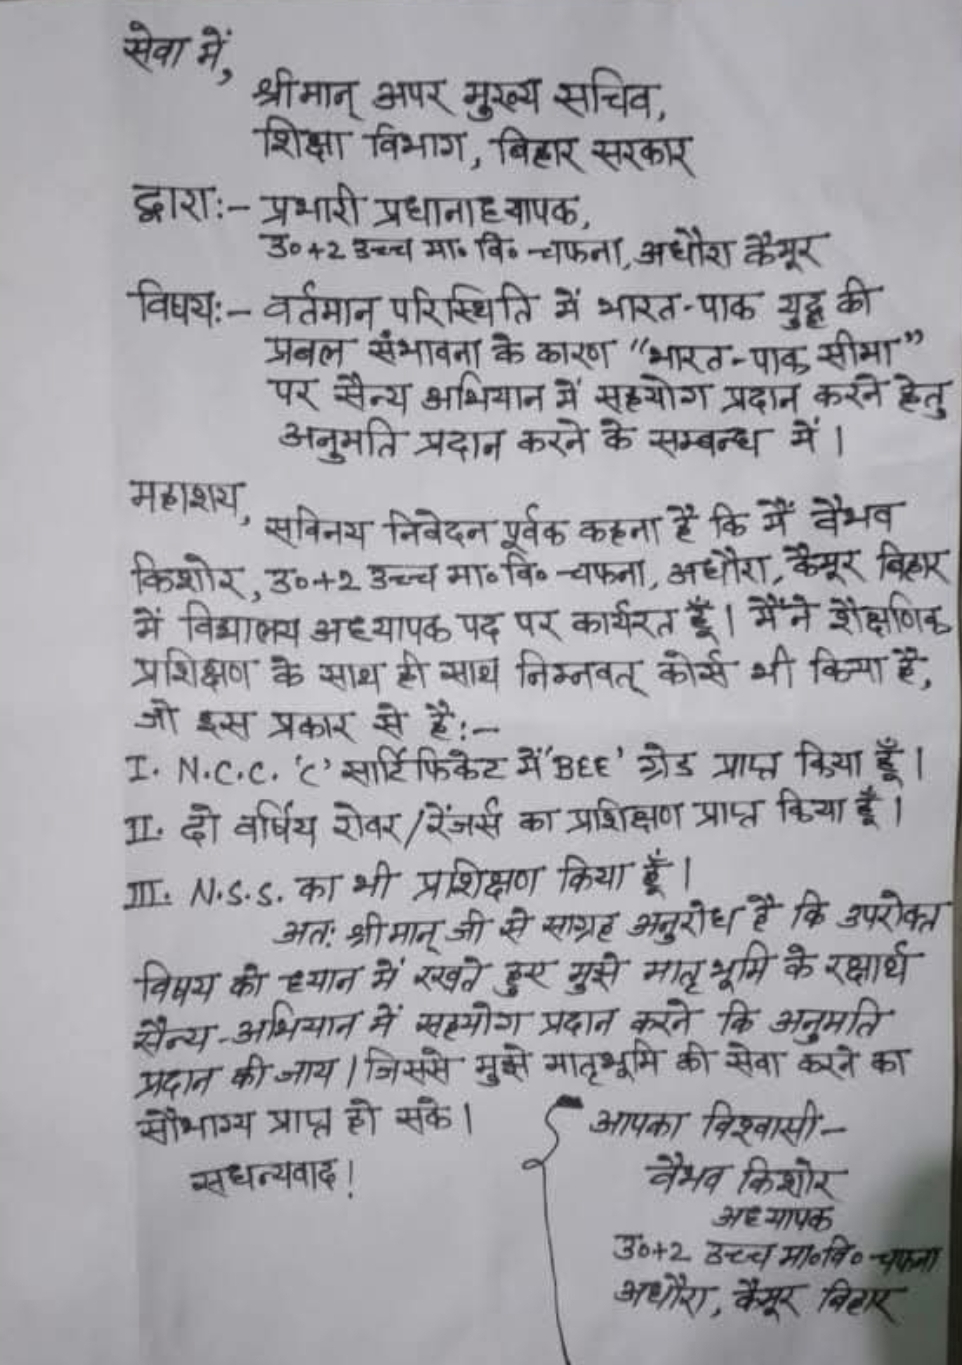 सेवा में,
श्रीमान् अपर मुख्य सचिव,
शिक्षा विभाग, बिहार सरकार
द्वारा:- प्रभारी प्रधानाध्यापक,
उ०+2 उच्च मा० वि० चफना, अधौरा कैमूर
विषय:- वर्तमान परिस्थिति में भारत-पाक युद्ध की
प्रबल संभावना के कारण "भारत-पाक सीमा"
पर सैन्य अभियान में सहयोग प्रदान करने हेतु
अनुमति प्रदान करने के सम्बन्ध में।
महाशय,
सविनय निवेदन पूर्वक कहना है कि मैं वैभव
किशोर, उ०+2 उच्च मा० वि० चफना, अधौरा, कैमूर बिहार
में विद्यालय अध्यापक पद पर कार्यरत हूँ। मैंने शैक्षणिक
प्रशिक्षण के साथ ही साथ निम्नवत् कोर्स भी किया है,
जो इस प्रकार से है:-
I. N.C.C. 'C' सार्टिफिकेट में 'BEE' ग्रेड प्राप्त किया हूँ।
II. दो वर्षिय रोवर/रेंजर्स का प्रशिक्षण प्राप्त किया हूँ।
III. N.S.S. का भी प्रशिक्षण किया हूँ।
अत: श्रीमान् जी से साग्रह अनुरोध है कि उपरोक्त
विषय को ध्यान में रखते हुए मुझे मातृभूमि के रक्षार्थ
सैन्य-अभियान में सहयोग प्रदान करने कि अनुमति
प्रदान की जाय। जिससे मुझे मातृभूमि की सेवा करने का
सौभाग्य प्राप्त हो सके।
सधन्यवाद!
आपका विश्वासी-
वैभव किशोर
अध्यापक
उ०+2 उच्च मा०वि० चफना
अधौरा, कैमूर बिहार